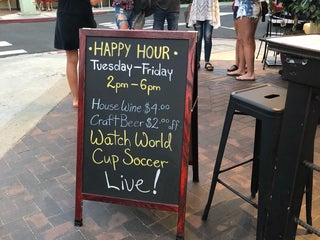 • HAPPY HOUR •
Tuesday-Friday
2pm-6pm
House Wine $4.00
Craft Beer $2.00 off
Watch World
Cup Soccer
Live!